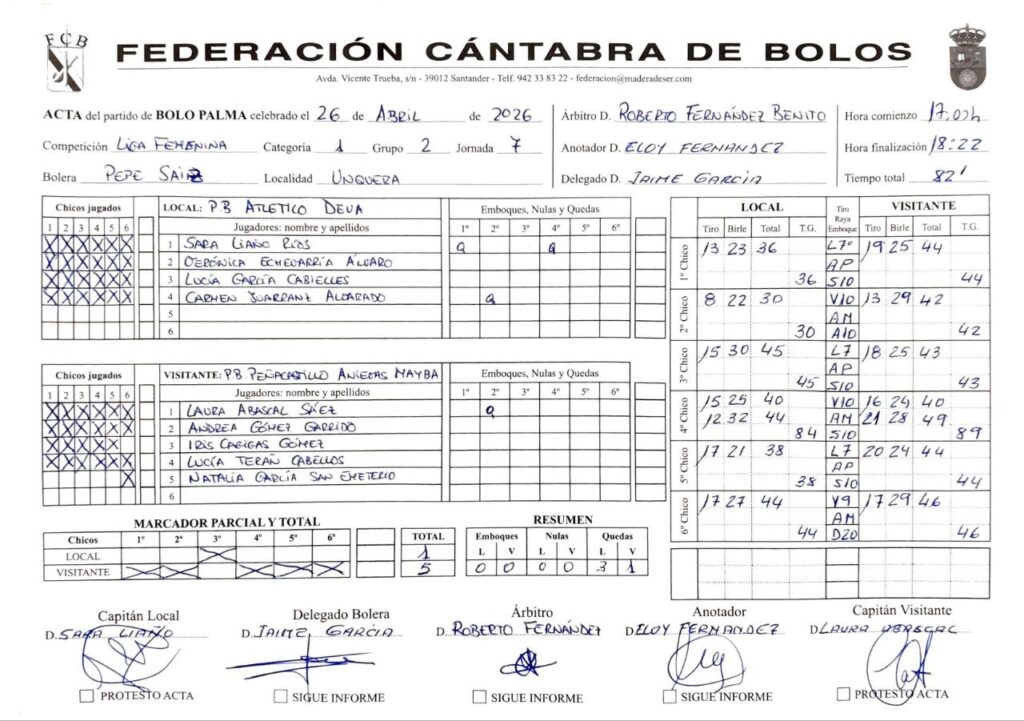 FCB
FEDERACIÓN CÁNTABRA DE BOLOS
Avda. Vicente Trueba, s/n - 39012 Santander - Telf. 942 33 83 22 - federacion@maderadeser.com
ACTA del partido de BOLO PALMA celebrado el 26 de ABRIL de 2026
Competición LIGA FEMENINA Categoria 1 Grupo 2 Jornada 7
Bolera PEPE SAIZ Localidad UNQUERA
Árbitro D. ROBERTO FERNÁNDEZ BENITO
Anotador D. ELOY FERNANDEZ
Delegado D. JAIME GARCIA
Hora comienzo 17:00h
Hora finalización 18:22
Tiempo total 82'
Chicos jugados
1 2 3 4 5 6
X X X X X X
X X X X X X
X X X X X X
X X X X X X
LOCAL: P.B ATLETICO DEVA
Jugadores: nombre y apellidos
Emboques, Nulas y Quedas
1º 2º 3º 4º 5º 6º
1 SARA LIAÑO RIOS Q Q
2 VERÓNICA ECHEVARRÍA ÁLVARO
3 LUCÍA GARCÍA CABIELLES
4 CARMEN ALVARADO Q
5
6
Chicos jugados
1 2 3 4 5 6
X X X X X X
X X X X X X
X X X X X X
X X X X X
X
VISITANTE: P.B PEÑACASTILLO ANIEVAS MAYBA
Jugadores: nombre y apellidos
Emboques, Nulas y Quedas
1º 2º 3º 4º 5º 6º
1 LAURA ABASCAL SÁEZ Q
2 ANDREA GÓMEZ GARRIDO
3 IRIS CAGIGAS GÓMEZ
4 LUCÍA TERÁN CABELLOS
5 NATALIA GARCÍA SAN EMETERIO
6
LOCAL Tiro Raya Emboque VISITANTE
Tiro Birle Total T.G. Tiro Birle Total T.G.
1º Chico
13 23 36 L7 19 25 44
AP
36 S10 44
2º Chico
8 22 30 V10 13 29 42
AM
30 A10 42
3º Chico
15 30 45 L7 18 25 43
AP
45 S10 43
4º Chico
15 25 40 V10 16 24 40
12 32 44 AM 21 28 49
84 S10 89
5º Chico
17 21 38 L7 20 24 44
AP
38 S10 44
6º Chico
17 27 44 V9 17 29 46
AM
44 D20 46
MARCADOR PARCIAL Y TOTAL
Chicos 1º 2º 3º 4º 5º 6º TOTAL
LOCAL X 1
VISITANTE X X X X X 5
RESUMEN
Emboques Nulas Quedas
L V L V L V
0 0 0 0 3 1
Capitán Local
D. SARA LIAÑO
PROTESTO ACTA
Delegado Bolera
D. JAIME GARCIA
SIGUE INFORME
Árbitro
D. ROBERTO FERNÁNDEZ
SIGUE INFORME
Anotador
D. ELOY FERNANDEZ
SIGUE INFORME
Capitán Visitante
D. LAURA ABASCAL
PROTESTO ACTA